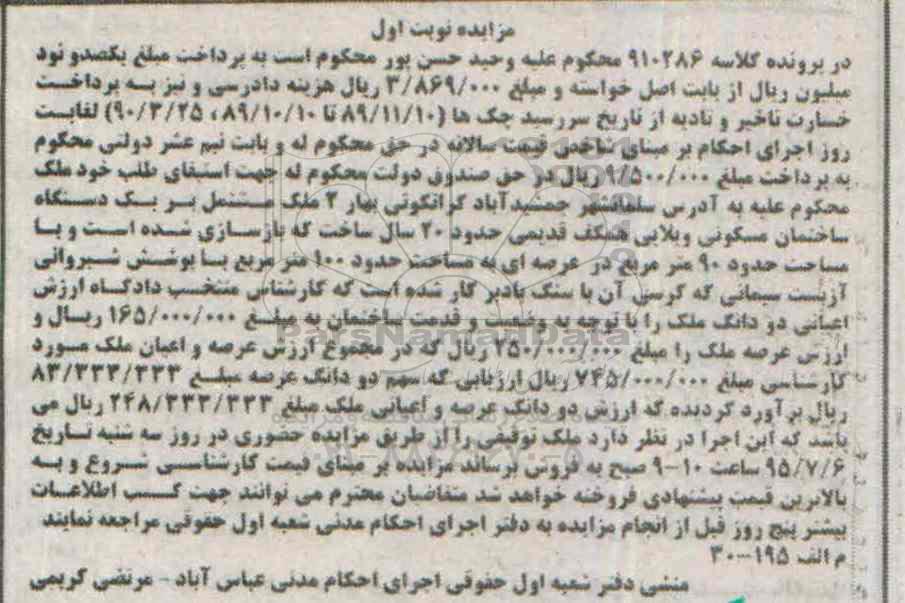 مزایده نوبت اول
در پرونده کلاسه ۹۱۰۲۸۶ محکوم علیه وحید حسن پور محکوم است به پرداخت مبلغ یکصدو نود
میلیون ریال از بابت اصل خواسته و مبلغ ۳/۸۶۹/۰۰۰ ریال هزینه دادرسی و نیز به پرداخت
خسارت تاخیر و تادیه از تاریخ سررسید چک ها (۸۹/۱۱/۱۰ تا ۸۹/۱۰/۱۰، ۹۰/۳/۲۵) لغایت
روز اجرای احکام بر مبنای شاخص قیمت سالانه در حق محکوم له و بابت نیم عشر دولتی محکوم
به پرداخت مبلغ ۹/۵۰۰/۰۰۰ ریال در حق صندوق دولت محکوم له جهت استیفای طلب خود ملک
محکوم علیه به آدرس سلمانشهر جمشیدآباد کرانکوتی بهار ۲ ملک مشتمل بر یک دستگاه
ساختمان مسکونی ویلایی همکف قدیمی حدود ۲۰ سال ساخت که بازسازی شده است و با
مساحت حدود ۹۰ متر مربع در عرصه ای به مساحت حدود ۱۰۰ متر مربع با پوشش شیروانی
آزبست سیمانی که کرسی آن با سنگ بادبر کار شده است که کارشناس منتخب دادگاه ارزش
اعیانی دو دانگ ملک را با توجه به وضعیت و قدمت ساختمان به مبلغ ۱۶۵/۰۰۰/۰۰۰ ریال و
ارزش عرصه ملک را مبلغ ۲۵۰/۰۰۰/۰۰۰ ریال که در مجموع ارزش عرصه و اعیان ملک مورد
کارشناسی مبلغ ۷۴۵/۰۰۰/۰۰۰ ریال ارزیابی که سهم دو دانگ عرصه مبلغ ۸۳/۳۳۳/۳۳۳
ریال برآورد گردیده که ارزش دو دانگ عرصه و اعیانی ملک مبلغ ۲۴۸/۳۳۳/۳۳۳ ریال می
باشد که این اجرا در نظر دارد ملک توقیفی را از طریق مزایده حضوری در روز سه شنبه تاریخ
۹۵/۷/۶ ساعت ۱۰-۹ صبح به فروش برساند مزایده بر مبنای قیمت کارشناسی شروع و به
بالاترین قیمت پیشنهادی فروخته خواهد شد متقاضیان محترم می توانند جهت کسب اطلاعات
بیشتر پنج روز قبل از انجام مزایده به دفتر اجرای احکام مدنی شعبه اول حقوقی مراجعه نمایند
م الف ۱۹۵-۳۰۰
منشی دفتر شعبه اول حقوقی اجرای احکام مدنی عباس آباد - مرتضی کریمی
ParsNamadData